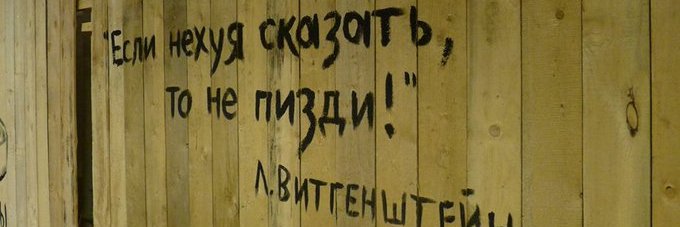 "Если нехуя сказать,
то не пизди!"
Л.ВИТГЕНШТЕЙН